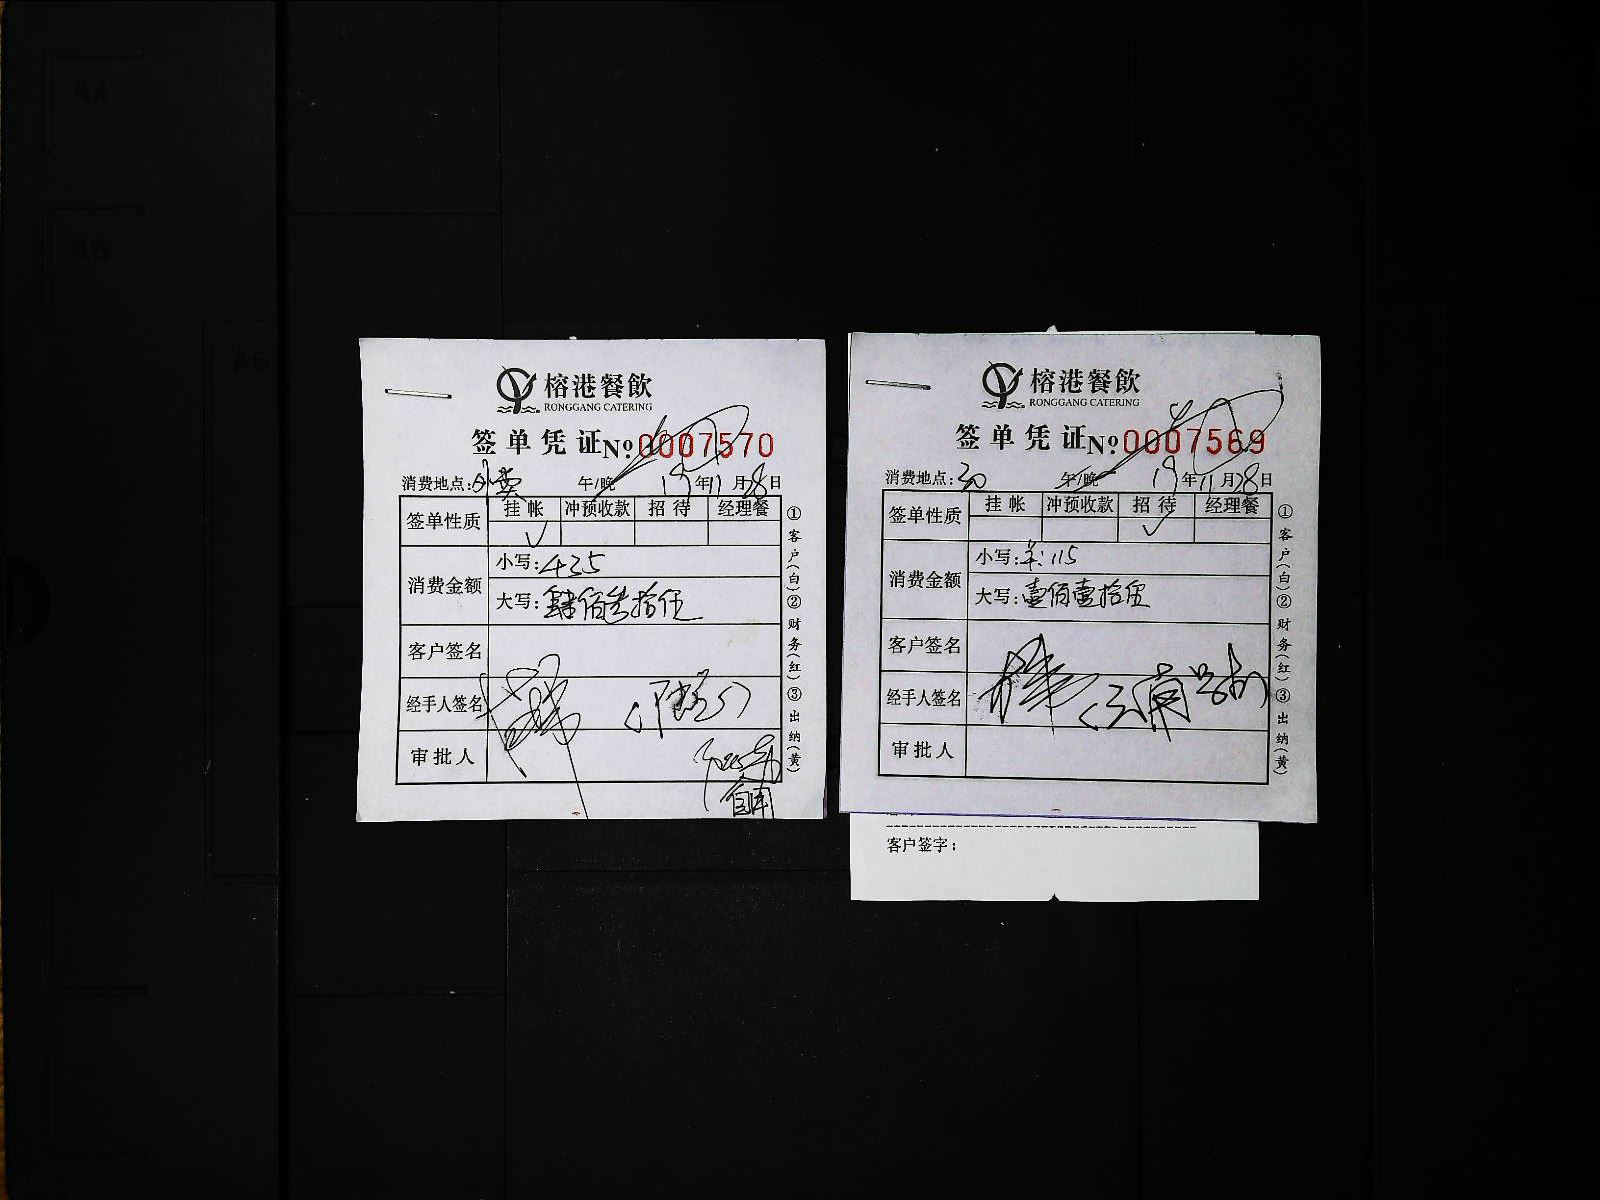 榕港餐飲
RONGGANG CATERING
签单凭证№0007570
消费地点:外卖 午/晚 19年11月28日
签单性质 挂帐 冲预收款 招待 经理餐
✓
消费金额 小写:435
大写:肆佰叁拾伍
客户签名
经手人签名
审批人
①客户(白)②财务(红)③出纳(黄)
榕港餐飲
RONGGANG CATERING
签单凭证№0007569
消费地点: 午/晚 19年11月28日
签单性质 挂帐 冲预收款 招待 经理餐
✓
消费金额 小写:羊:115
大写:壹佰壹拾伍
客户签名
经手人签名
审批人
①客户(白)②财务(红)③出纳(黄)
客户签字:
A4
A5
A6